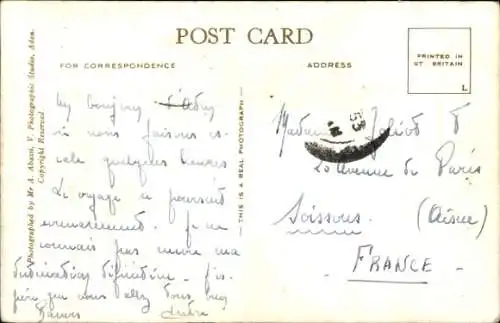 POST CARD
FOR CORRESPONDENCE
ADDRESS
PRINTED IN
GT BRITAIN
L
Photographed by Mr A. Abassi, V. Photographic Studio, Aden.
Copyright Reserved.
THIS IS A REAL PHOTOGRAPH
un bonjour d'Aden
où nous faisons es-
cale quelques heures
Le voyage se poursuit
Je ne
connais pas encore ma
destination définitive. J'es-
père que vous allez tous bien
Baisers
André
Madame
20 Avenue de Paris
Soissons. (Aisne)
FRANCE